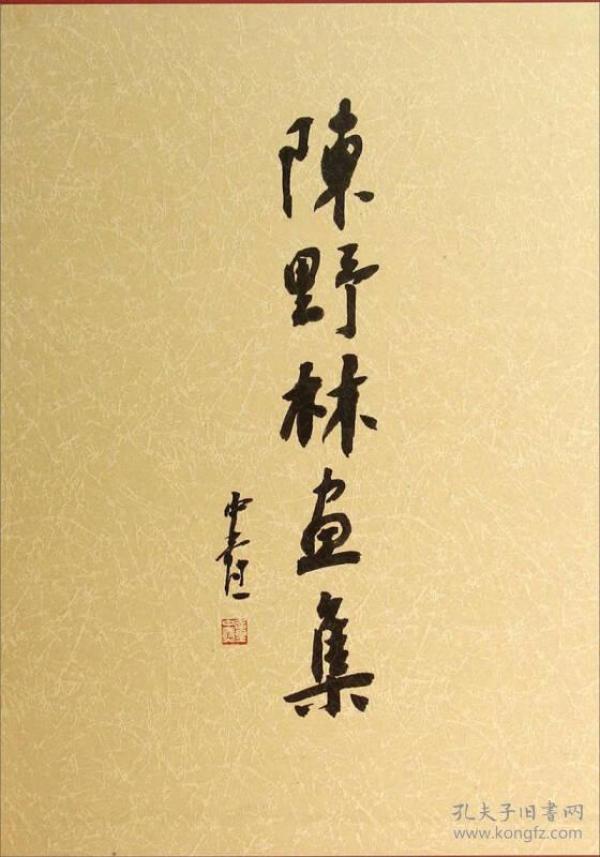 陳野林画集
孔夫子旧書网
www.kongfz.com